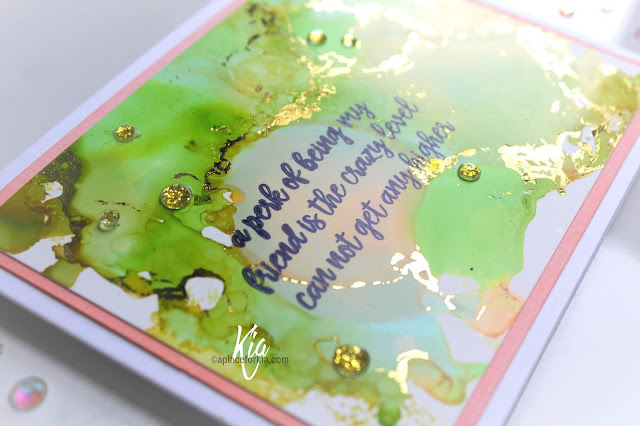 a perk of being my
friend is the crazy level
can not get any higher
Kia
©aplaceforkia.com